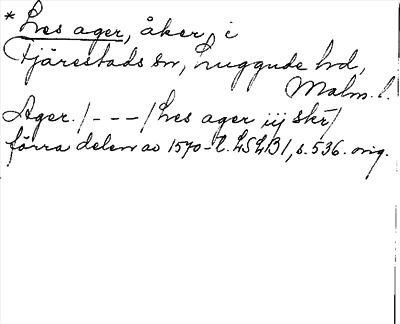 * Les ager, åker, i
Fjärestads sn, Luggude hd,
Malm. l.
Ager. /---/ Les ager iij skr/
förra delen av 1570-t. LSLB1, s. 536. orig.